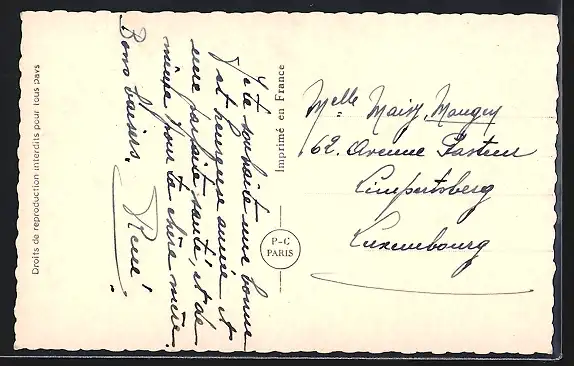 Je te souhaite une bonne
et heureuse année et
une parfaite santé, et de
même pour ta chère mère.
Bons baisers
René
Melle Maisy
62. Avenue Pasteur
Limpertsberg
Luxembourg
Imprimé en France
P-C
PARIS
Droits de reproduction interdits pour tous pays